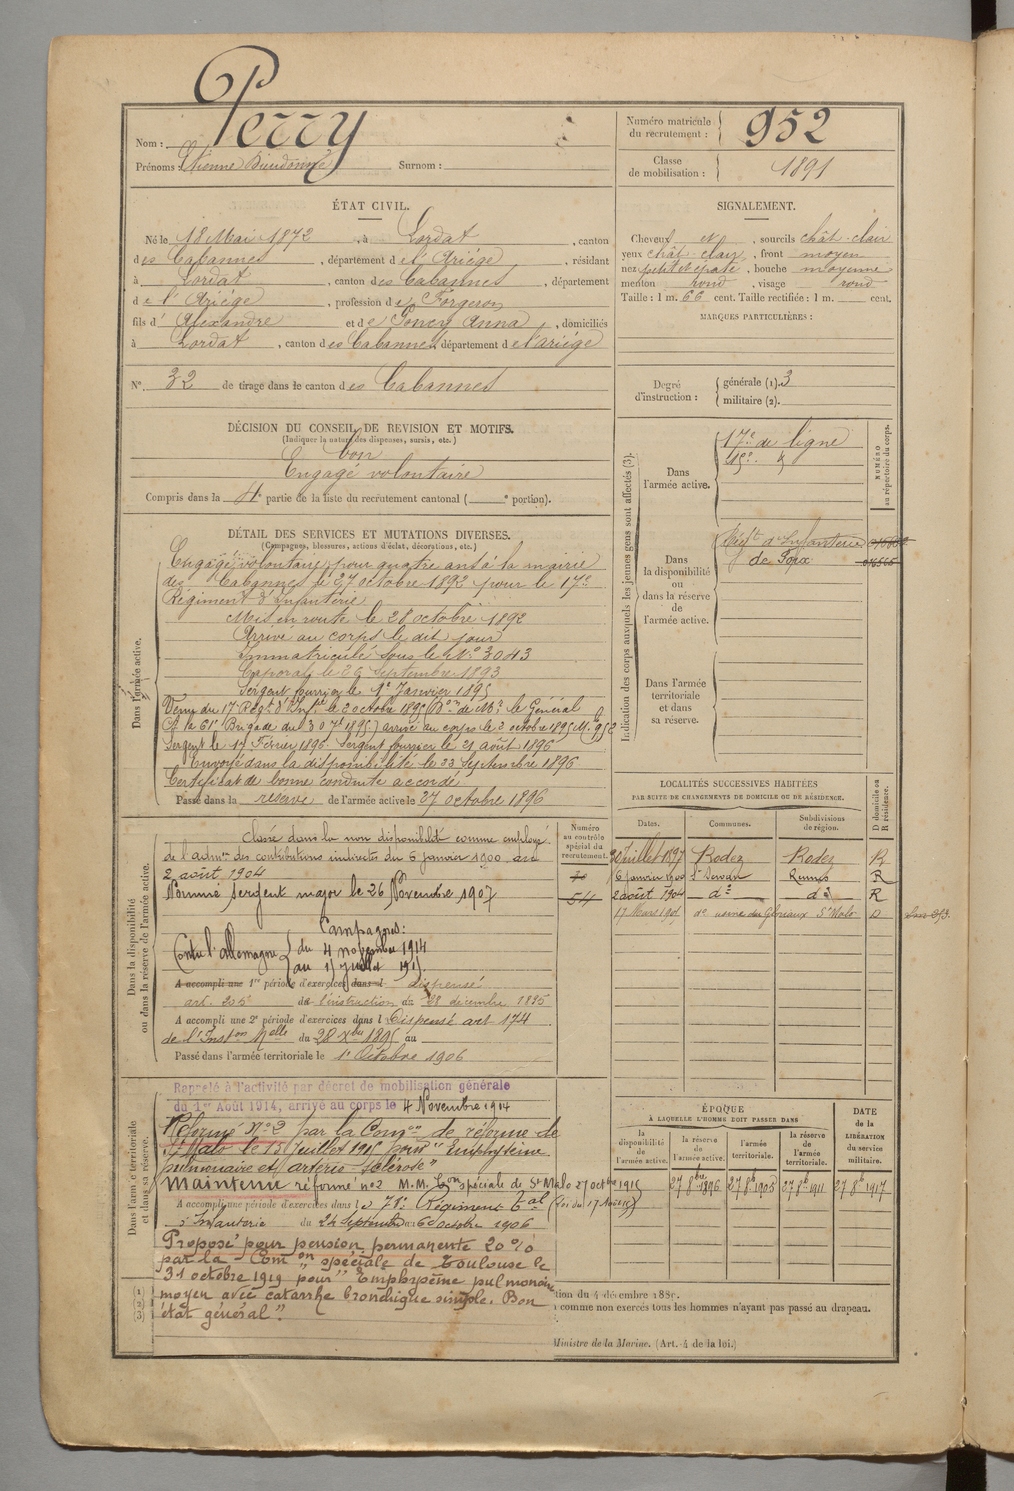 Nom : Perry
Prénoms : Etienne Dieudonné Surnom :
Numéro matricule du recrutement : 952
Classe de mobilisation : 1891
ÉTAT CIVIL.
Né le 18 Mai 1872, à Lordat, canton
des Cabannes, département de l'Ariège, résidant
à Lordat, canton des Cabannes, département
de l'Ariège, profession de Forgeron
fils d'Alexandre et de Anna, domiciliés
à Lordat, canton des Cabannes, département de l'ariège
N° 32 de tirage dans le canton des Cabannes
SIGNALEMENT.
Cheveux et, sourcils chât-clair
yeux chât-clair, front moyen
nez petit et épaté, bouche moyenne
menton rond, visage rond
Taille : 1 m. 66 cent. Taille rectifiée : 1 m. cent.
MARQUES PARTICULIÈRES :
Degré d'instruction : générale (1). 3
militaire (2).
DÉCISION DU CONSEIL DE REVISION ET MOTIFS.
(Indiquer la nature des dispenses, sursis, etc.)
bon
Engagé volontaire
Compris dans la 4e partie de la liste du recrutement cantonal ( e portion).
DÉTAIL DES SERVICES ET MUTATIONS DIVERSES.
(Campagnes, blessures, actions d'éclat, décorations, etc.)
Dans l'armée active.
Engagé volontaire pour quatre ans à la mairie
des Cabannes le 27 octobre 1892 pour le 17e
Régiment d'Infanterie
Mis en route le 28 octobre 1892
Arrivé au corps le dit jour
Immatriculé sous le N° 3043
Caporal le 26 Septembre 1893
Sergent fourrier le 1er Janvier 1895
Venu du 17e Regt d'Inf le 2 octobre 1895 (Don de Mr le Général
Ct la 61e Brigade du 30 7bre 1895) arrivé au corps le 2 octobre 1895 Mle 952
Sergent le 1er Février 1896. Sergent fourrier le 21 août 1896
Envoyé dans la disponibilité le 23 Septembre 1896
Certificat de bonne conduite accordé
Passé dans la réserve de l'armée active le 27 octobre 1896
Indication des corps auxquels les jeunes gens sont affectés (3).
NUMÉRO au répertoire du corps.
Dans l'armée active.
17e de ligne
15e
Dans la disponibilité ou dans la réserve de l'armée active.
Régt d'Infanterie
de Foix
Dans l'armée territoriale et dans sa réserve.
LOCALITÉS SUCCESSIVES HABITÉES
PAR SUITE DE CHANGEMENTS DE DOMICILE OU DE RÉSIDENCE.
Dates. Communes. Subdivisions de région. D domicile ou R résidence.
Juillet 1897 Rodez Rodez R
6 janvier 1900 St Servan Rennes R
2 août 1904 do do R
17 Mars 1905 do St Malo D
Dans la disponibilité ou dans la réserve de l'armée active.
Numéro au contrôle spécial du recrutement.
54
Classé dans la non disponibilité comme employé
de l'admon des contributions indirectes du 6 janvier 1900 au
2 août 1904
Nommé Sergent major le 26 Novembre 1907
Campagnes :
Contre l'allemagne du 4 novembre 1914
au 15 juillet 1915
A accompli une 1re période d'exercices dans l dispensé
art. de l'instruction du 28 décembre 1895
A accompli une 2e période d'exercices dans l Dispensé art 174
de l'Inston Nelle du 28 Xbre 1895 au
Passé dans l'armée territoriale le 1er Octobre 1906
Dans l'armée territoriale et dans sa réserve.
Rappelé à l'activité par décret de mobilisation générale
du 1er Août 1914, arrivé au corps le 4 Novembre 1914
Réformé N° 2 par la Comon de réforme de
St Malo le 15 Juillet 1915 pour "Emphysème
pulmonaire et artério-sclérose"
Maintenu réformé n°2 M.M. Con spéciale de St Malo 27 octobre 1915
(Loi du 17 Août 15)
A accompli une période d'exercices dans le 71e Régiment tal
d'Infanterie du 24 Septembre au 6 octobre 1906
Proposé pour pension permanente 20 %
par la Comon spéciale de Toulouse le
31 octobre 1919 pour "Emphysème pulmonaire
moyen avec catarrhe bronchique simple. Bon
état général".
ÉPOQUE
À LAQUELLE L'HOMME DOIT PASSER DANS
la disponibilité de l'armée active. la réserve de l'armée active. l'armée territoriale. la réserve de l'armée territoriale. DATE de la LIBÉRATION du service militaire.
27 8bre 1896 27 8b 1905 27 8b 1911 27 8b 1917
(1)
(2)
(3)
tion du 4 décembre 1889.
comme non exercés tous les hommes n'ayant pas passé au drapeau.
Ministre de la Marine. (Art. 4 de la loi.)